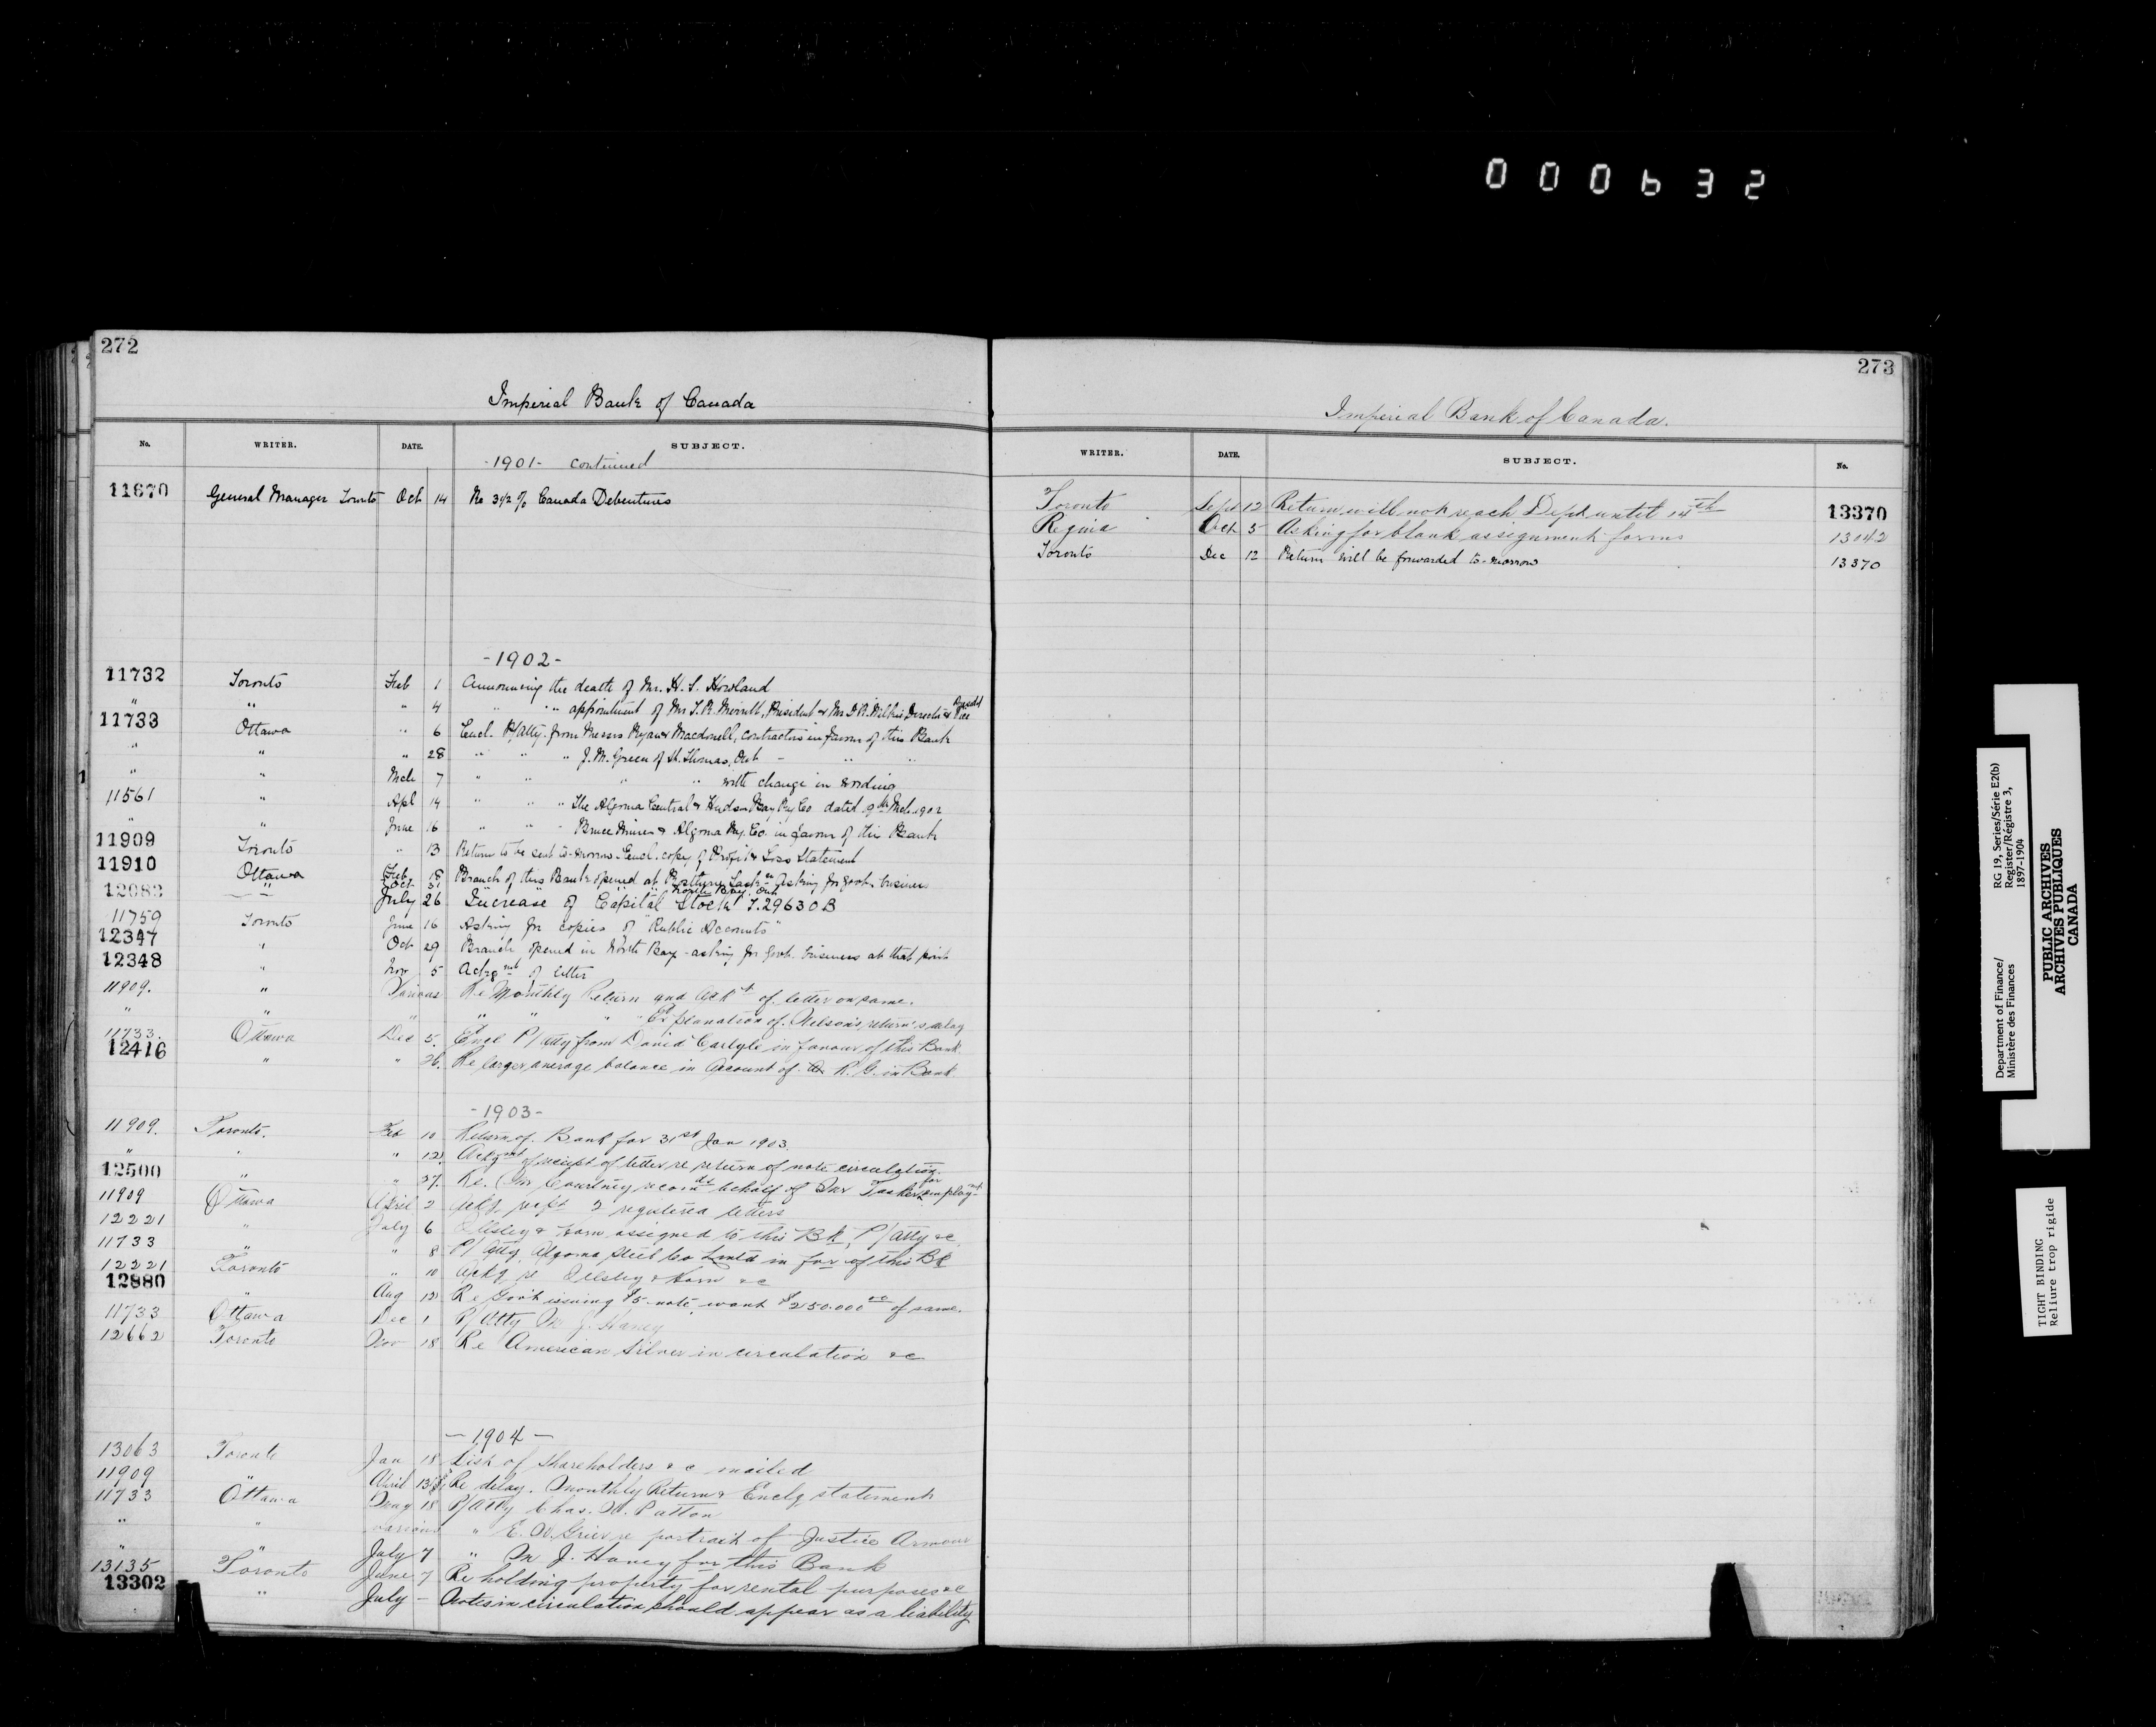 000632
272
Imperial Bank of Canada
No. WRITER. DATE. SUBJECT.
-1901- continued
11670 General Manager Toronto Oct 14 Re 3½ % Canada Debentures
-1902-
11732 Toronto Feb 1 Announcing the death of Mr. H. S. Howland
" " " 4 " " appointment of Mr T. R. Merritt, President & Mr D. R. Wilkie Director & Vice Presdt
11733 Ottawa " 6 Encl. P/Atty. from Messrs Ryan & Macdonell, contractors in favour of this Bank
" " " 28 " " " J. M. Green of St. Thomas, Ont - " "
" " Mch 7 " " " " with change in wording
11561 " Apl 14 " " " The Algoma Central & Hudson Bay Ry Co dated 9th Mch. 1902
" " June 16 " " " Bruce Mines & Algoma Ry. Co. in favour of this Bank
11909 Toronto " 13 Return to be sent to-morrow. Encl. copy of Profit & Loss Statement
11910 Ottawa Feb 18 Branch of this Bank opened at Rosthern Sask. Asking for govt. business
" Oct 31 " " " " North Bay Ont
12082 July 26 Increase of Capital Stock J. 29630B
11759 Toronto June 16 Asking for copies of "Public Accounts"
12347 " Oct 29 Branch opened in North Bay - asking for Govt. business at that point
12348 " Nov 5 Ackgmt of letter
11909. " Various Re Monthly Return and Ackt of letter on same.
" " " " " " " Explanation of Nelson's return's delay
11733. Ottawa Dec 5. Encl P/Atty from David Carlyle in favour of this Bank.
12416 " " 26. Re larger average balance in Account of R. G. in Bank.
-1903-
11909. Toronto. Feb 10 Return of Bank for 31st Jan 1903.
" " " 12 Ackgmt of receipt of letter re return of note circulation.
12500 " " 27. Re. Mr Courtney recomds behalf of Mr Tasker for employmt
11909 Ottawa April 2 Ackg. rect 2 registered letters
12221 " July 6 Illsley & Horn assigned to this Bk, P/Atty &c
11733 " " 8 P/Atty. Algoma Steel Co Limtd in for of this Bk
12221 Toronto " 10 Ackg re Illsley & Horn &c
12880 " Aug 12 Re Govt issuing $5 note, want $250.000 00 of same.
11733 Ottawa Dec 1 P/Atty M J. Haney
12662 Toronto Nov 18 Re American Silver in circulation &c
- 1904 -
13063 Toronto Jan 18 List of Shareholders &c mailed
11909 " April 13 Re delay. Monthly Return & Enclg statement
11733 Ottawa May 18 P/Atty Chas. W. Patton
" " various " E. W. Grier re portrait of Justice Armour
" " July 7 " M J. Haney for this Bank
13135 Toronto June 7 Re holding property for rental purposes &c
13302 " July - Notes in circulation should appear as a liability
273
Imperial Bank of Canada.
WRITER. DATE. SUBJECT. No.
Toronto Sept 12 Return will not reach Dept. until 14th 13370
Regina Oct 5 Asking for blank assignment forms 13042
Toronto Dec 12 Return will be forwarded to-morrow 13370
Department of Finance/
Ministère des Finances
RG 19, Series/Série E2(b)
Register/Régistre 3,
1897-1904
PUBLIC ARCHIVES
ARCHIVES PUBLIQUES
CANADA
TIGHT BINDING
Reliure trop rigide